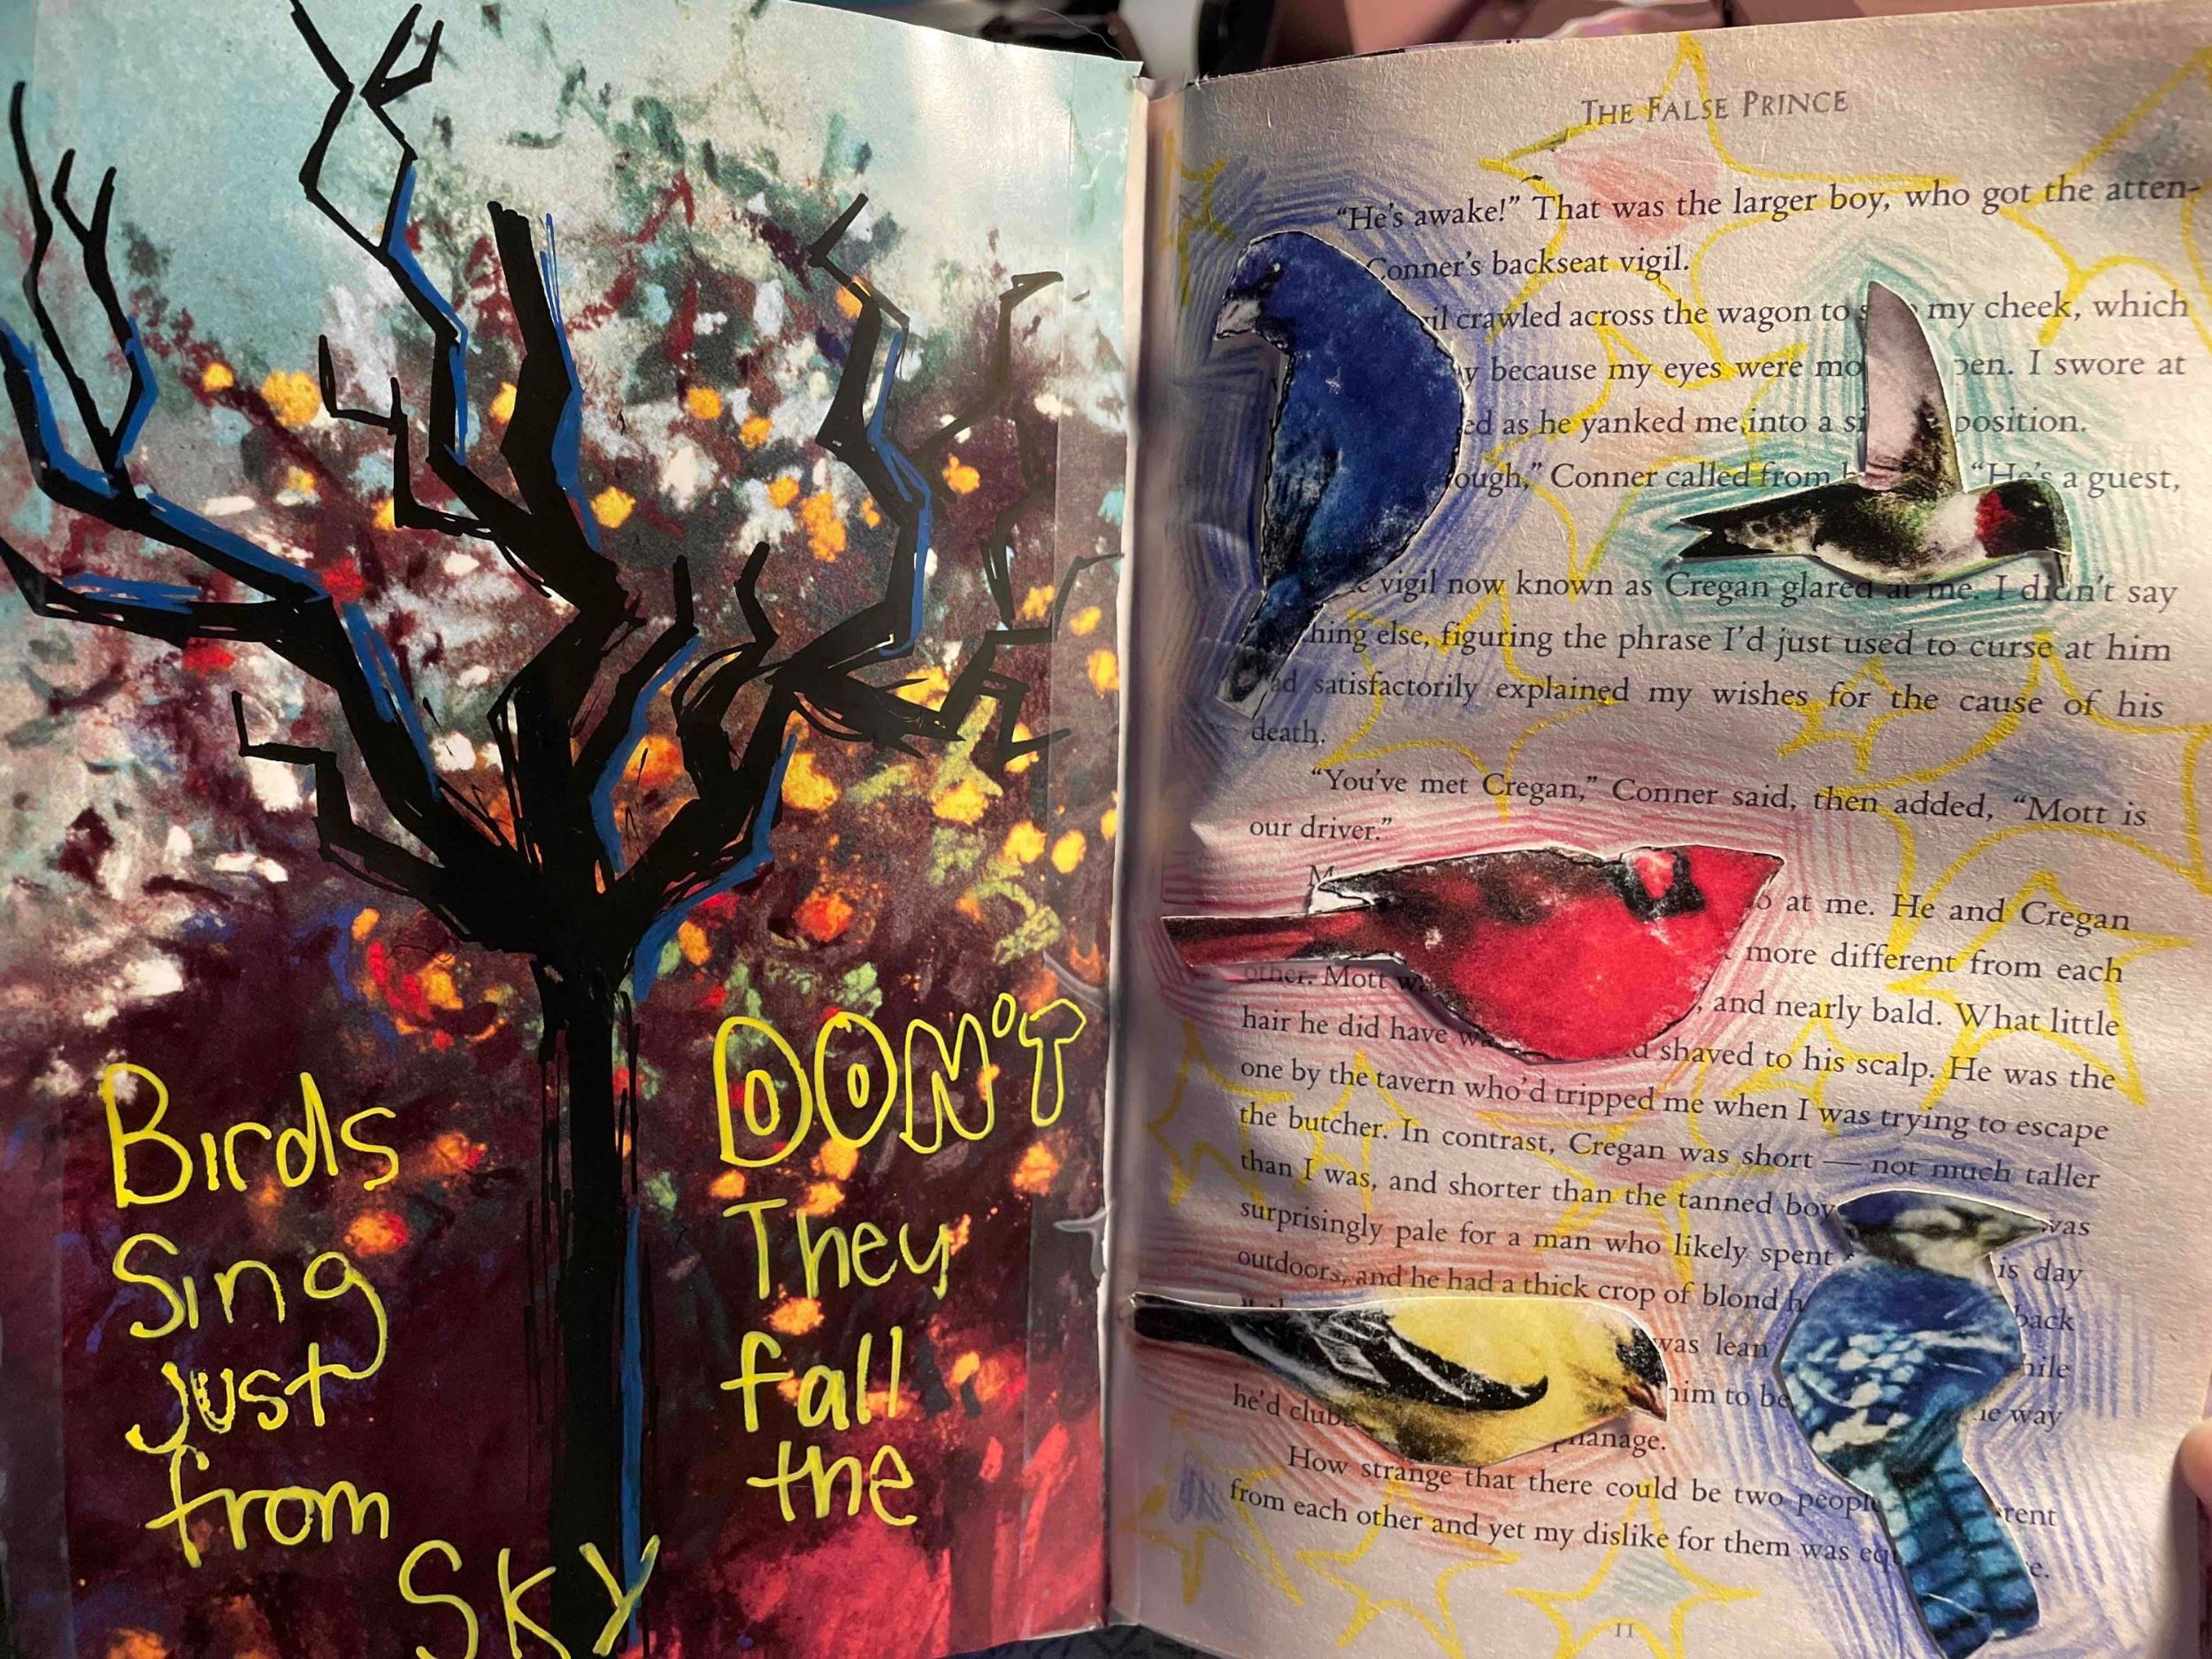 Birds DON'T
Sing They
just fall
from the
SKY
THE FALSE PRINCE
"He's awake!" That was the larger boy, who got the atten-
Conner's backseat vigil.
crawled across the wagon to my cheek, which
because my eyes were open. I swore at
as he yanked me into a position.
Conner called from "He's a guest,
vigil now known as Cregan glared at me. I didn't say
else, figuring the phrase I'd just used to curse at him
satisfactorily explained my wishes for the cause of his
death.
"You've met Cregan," Conner said, then added, "Mott is
our driver."
at me. He and Cregan
more different from each
other. Mott and nearly bald. What little
hair he did have shaved to his scalp. He was the
one by the tavern who'd tripped me when I was trying to escape
the butcher. In contrast, Cregan was short — not much taller
than I was, and shorter than the tanned boy was
surprisingly pale for a man who likely spent is day
outdoors, and he had a thick crop of blond back
was lean
him to be way
he'd manage.
How strange that there could be two people
from each other and yet my dislike for them was
11